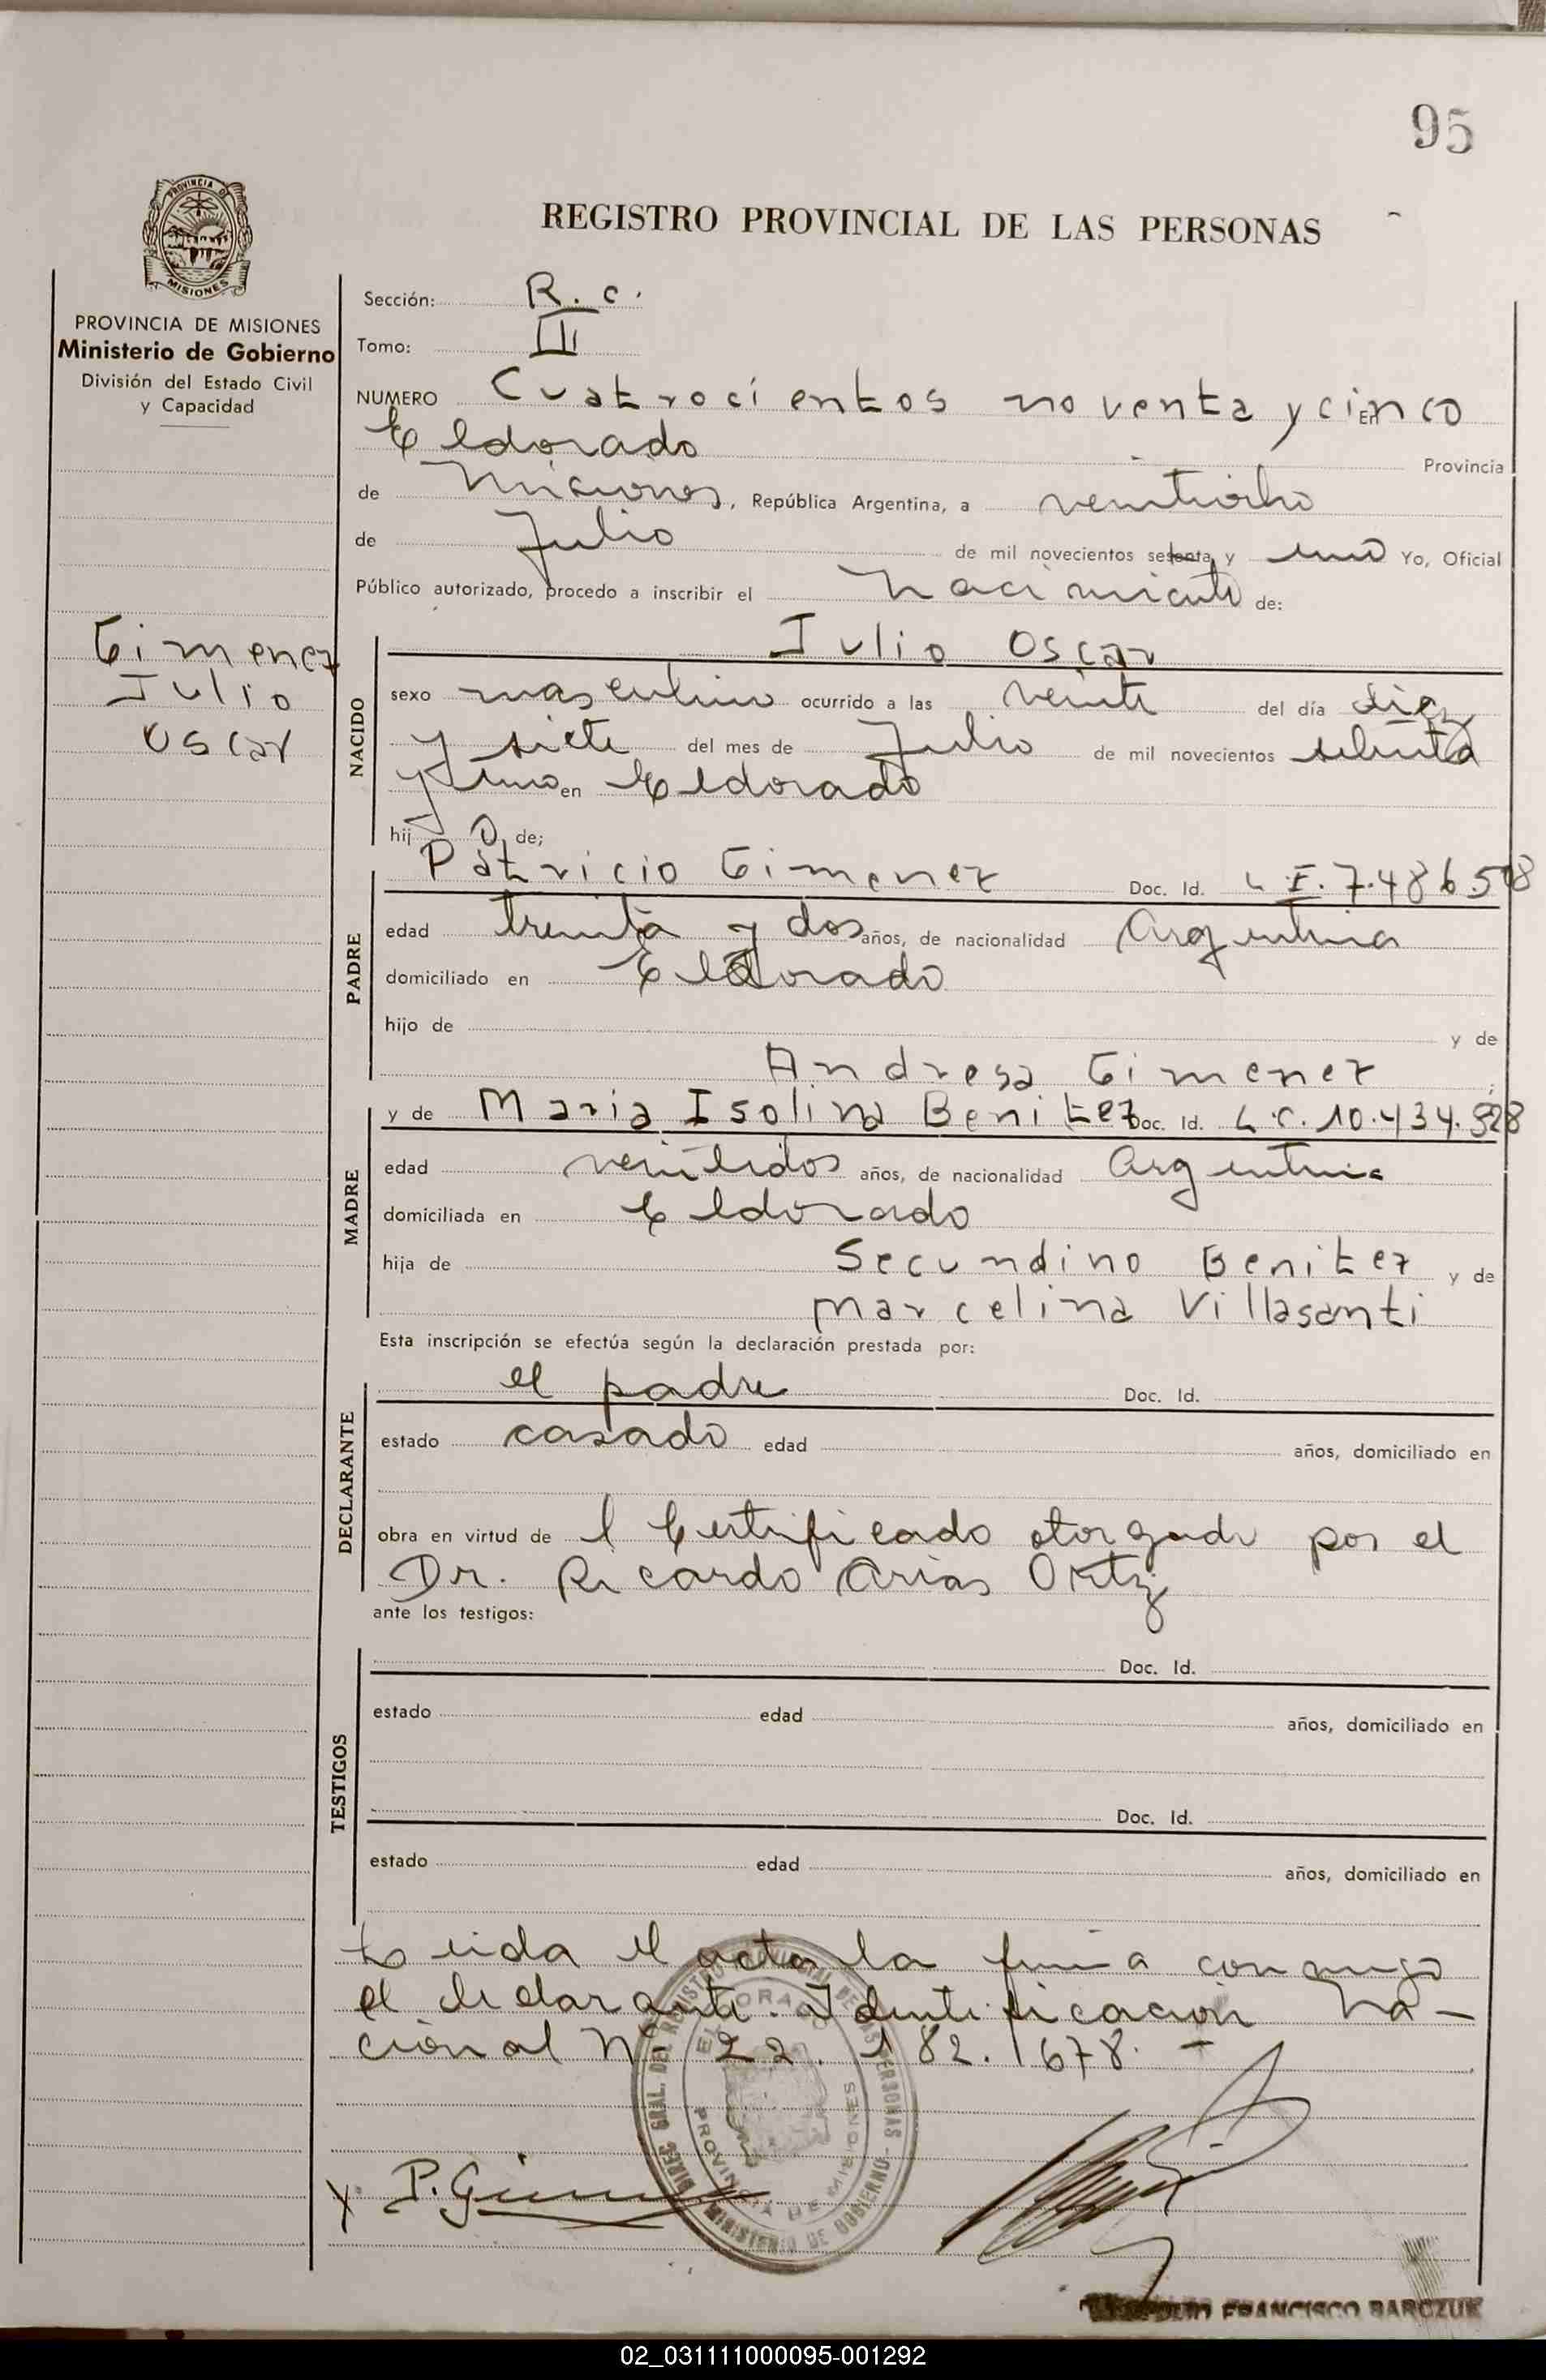 95
PROVINCIA DE
MISIONES
REGISTRO PROVINCIAL DE LAS PERSONAS
PROVINCIA DE MISIONES
Ministerio de Gobierno
División del Estado Civil
y Capacidad
Sección: R. c.
Tomo: III
NUMERO Cuatrocientos noventa y cinco En
Eldorado Provincia
de Misiones, República Argentina, a veintiocho
de Julio de mil novecientos setenta y uno Yo, Oficial
Público autorizado, procedo a inscribir el nacimiento de:
Gimenez
Julio
Oscar
NACIDO
Julio Oscar
sexo masculino ocurrido a las veinte del día diez
y siete del mes de Julio de mil novecientos setenta
y uno en Eldorado
hij o de;
PADRE
Patricio Gimenez Doc. Id. L.E. 7.486.5
edad treinta y dos años, de nacionalidad Argentina
domiciliado en Eldorado
hijo de y de
Andresa Gimenez ;
MADRE
y de Maria Isolina Benitez Doc. Id. L.C. 10.434.928
edad veintidos años, de nacionalidad Argentina
domiciliada en Eldorado
hija de Secundino Benitez y de
Marcelina Villasanti
Esta inscripción se efectúa según la declaración prestada por:
DECLARANTE
el padre Doc. Id.
estado casado edad años, domiciliado en
obra en virtud de l Certificado otorgado por el
Dr. Ricardo Arias Ortiz
ante los testigos:
TESTIGOS
Doc. Id.
estado edad años, domiciliado en
Doc. Id.
estado edad años, domiciliado en
Leida el acta la firma conmigo
el declarante. Identificacion Na-
cional Nº 22.182.678. -
DIREC. GRAL. DEL REGISTRO PROVINCIAL DE LAS PERSONAS - MINISTERIO DE GOBIERNO
ELDORADO
PROVINCIA DE MISIONES
X P. Gimenez
FRANCISCO BARCZUK
02_031111000095-001292